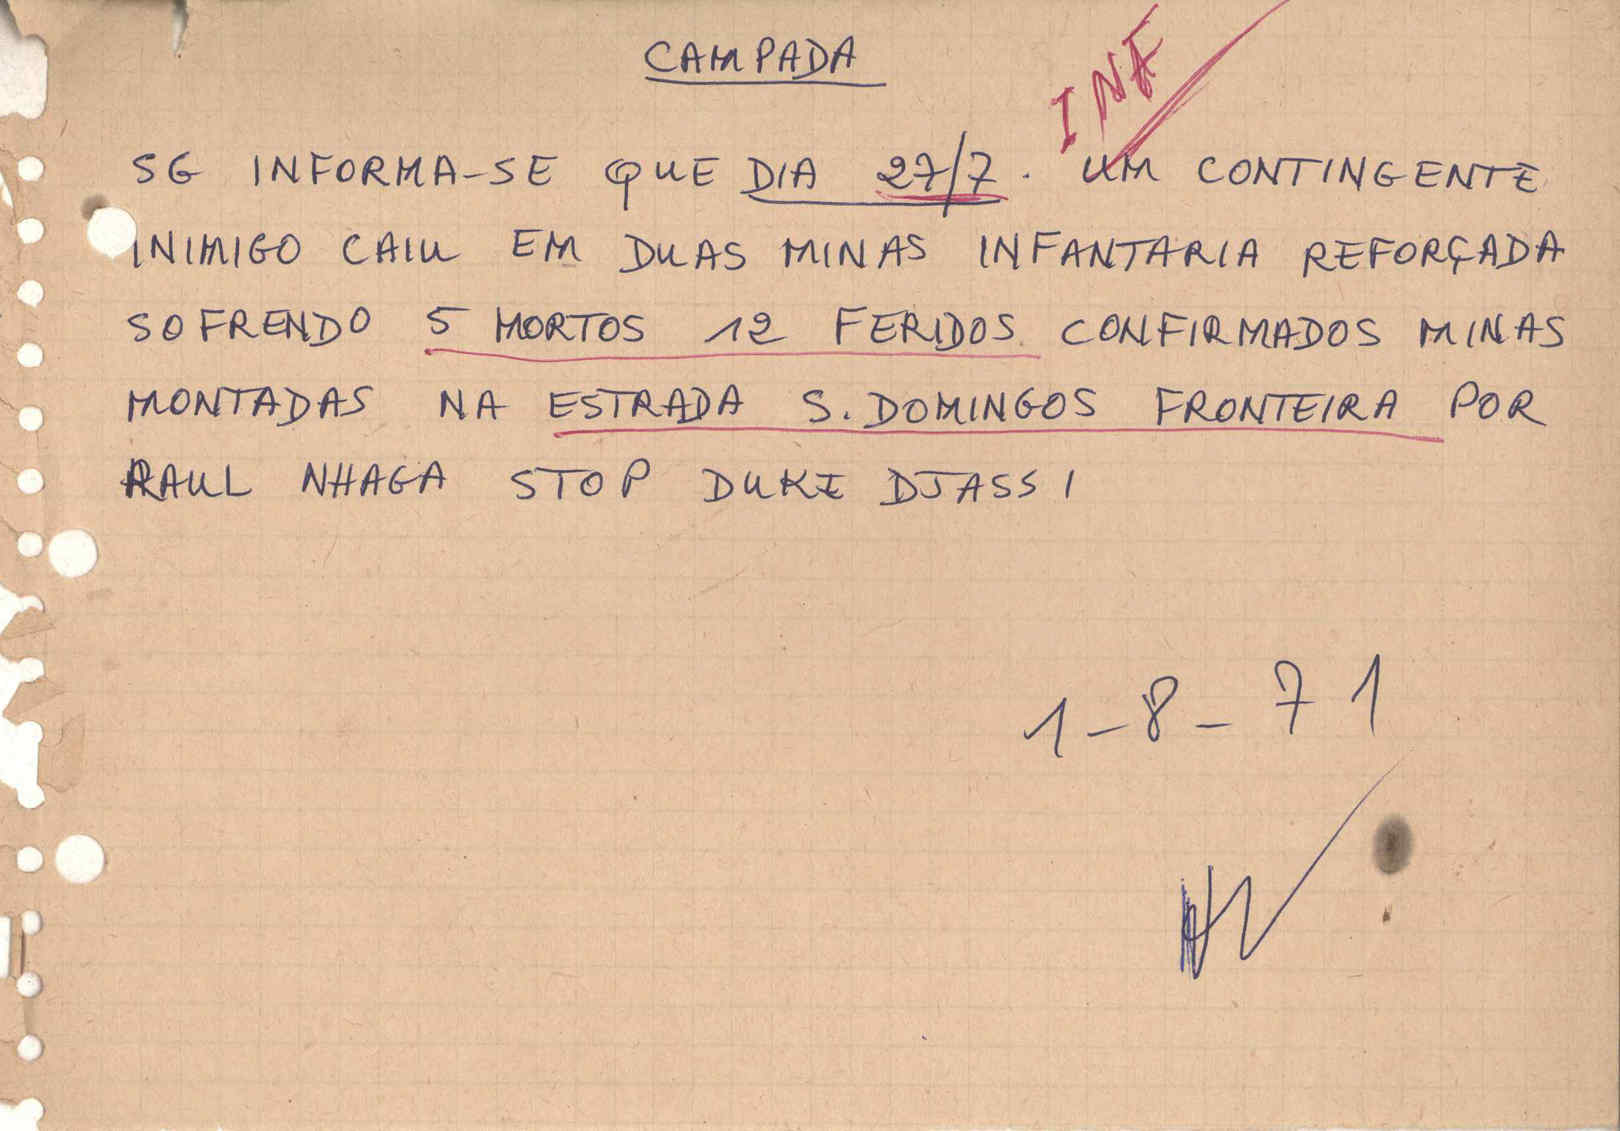 CAMPADA
INF
SG INFORMA-SE QUE DIA 27/7. UM CONTINGENTE
INIMIGO CAIU EM DUAS MINAS INFANTARIA REFORÇADA
SOFRENDO 5 MORTOS 12 FERIDOS CONFIRMADOS MINAS
MONTADAS NA ESTRADA S. DOMINGOS FRONTEIRA POR
RAUL NHAGA STOP DUKE DJASSI
1-8-71